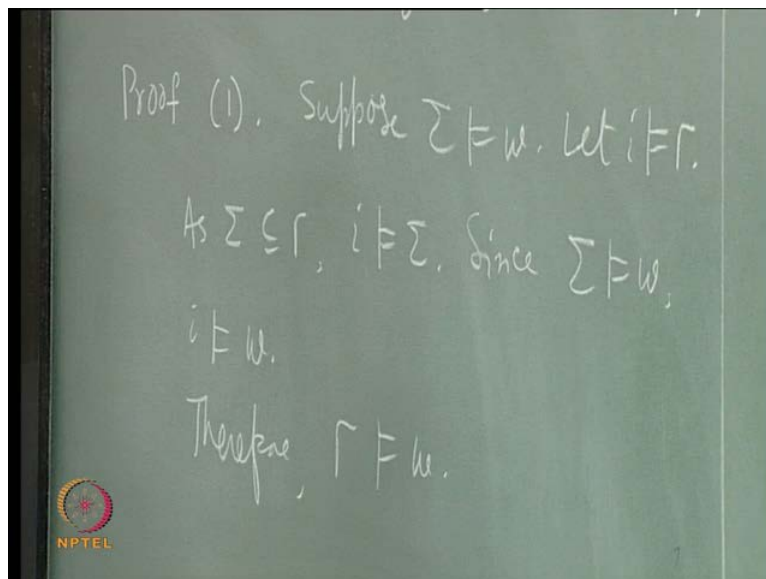 Proof (1). Suppose Σ ⊨ w. Let i ⊨ Γ.
As Σ ⊆ Γ, i ⊨ Σ. Since Σ ⊨ w,
i ⊨ w.
Therefore, Γ ⊨ w.
NPTEL